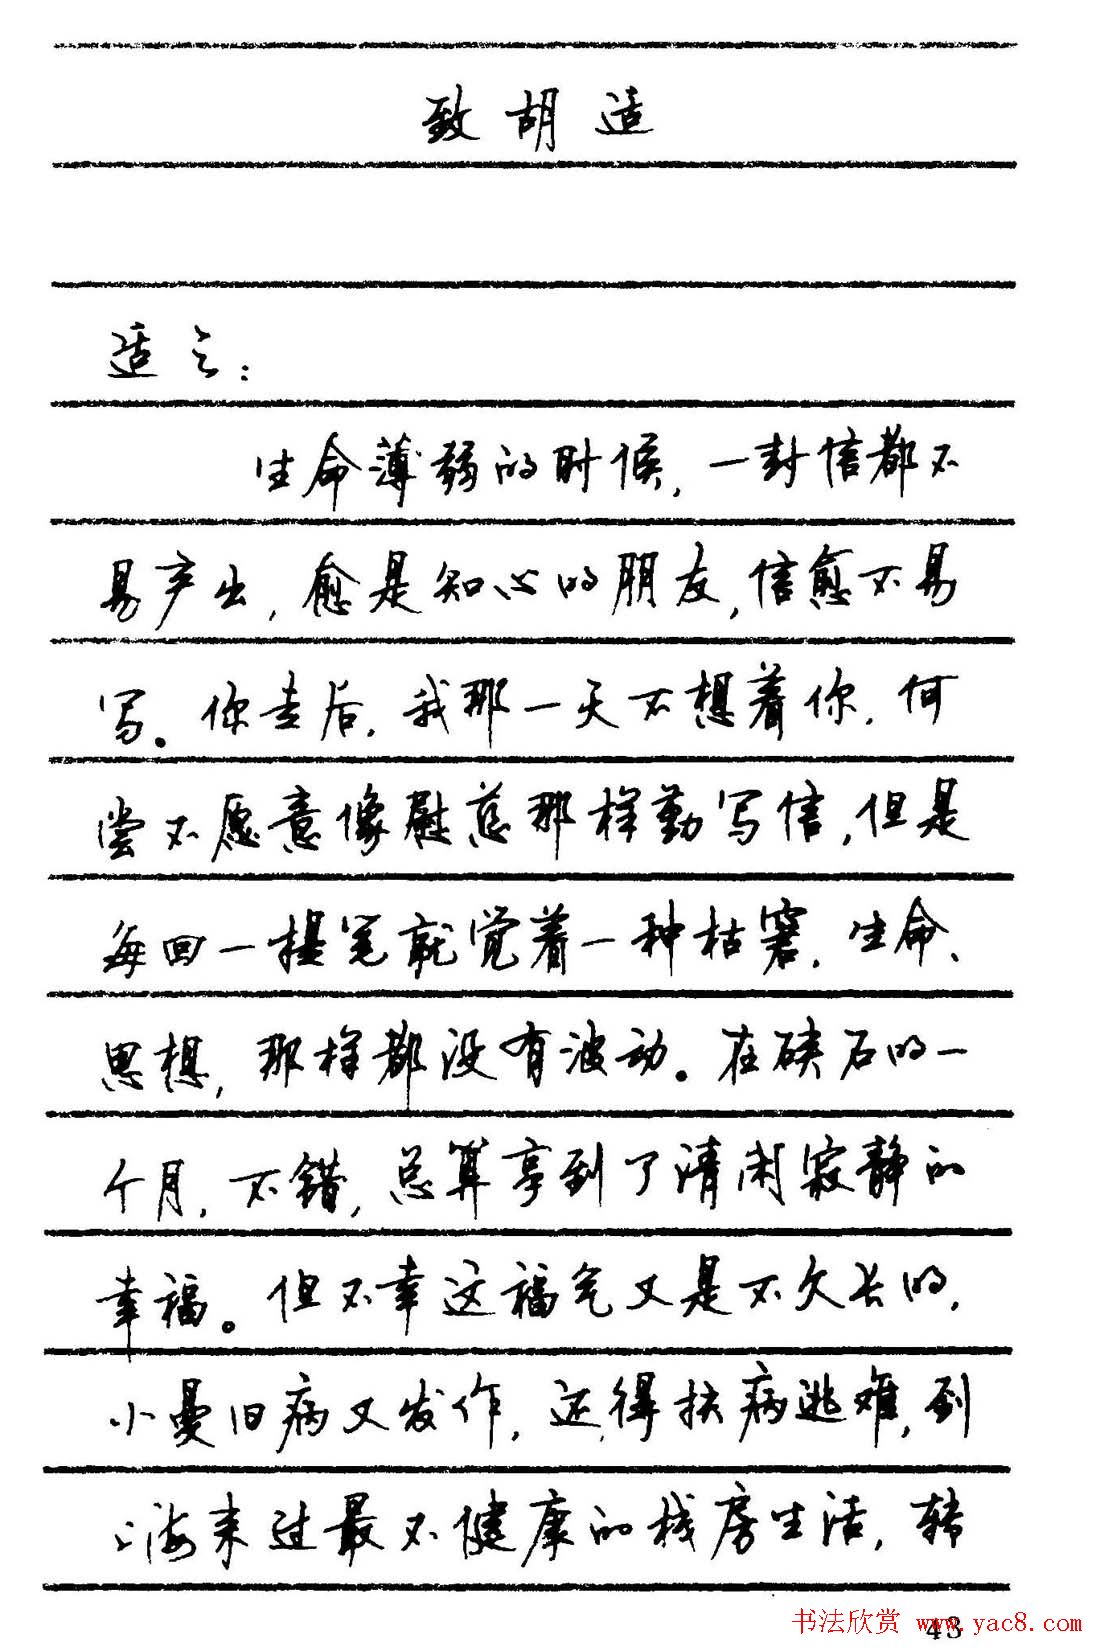 致胡适
适之：
生命薄弱的时候，一封信都不
易产出，愈是知心的朋友，信愈不易
写。你走后，我那一天不想着你，何
尝不愿意像慰慈那样勤写信，但是
每回一提笔就觉着一种枯窘，生命、
思想，那样都没有波动。在硖石的一
个月，不错，总算享到了清闲寂静的
幸福。但不幸这福气又是不久长的，
小曼旧病又发作，还得扶病逃难，到
上海来过最不健康的栈房生活，转
43
书法欣赏 www.yac8.com